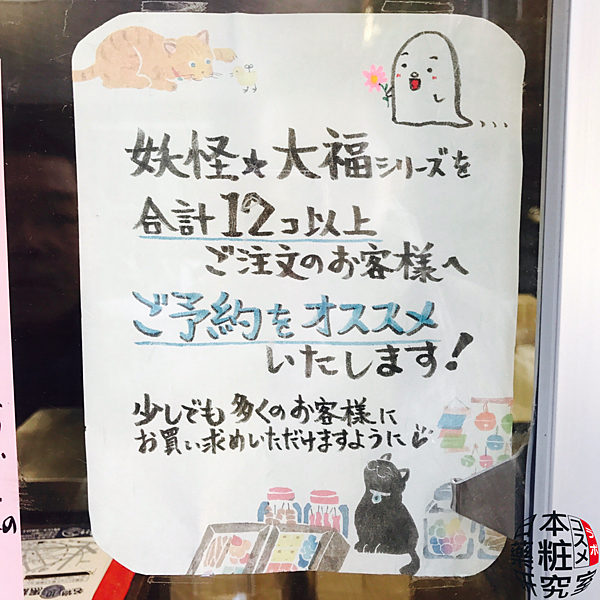 妖怪★大福シリーズを
合計12コ以上
ご注文のお客様へ
ご予約をオススメ
いたします!
少しでも多くのお客様に
お買い求めいただけますように
の
日本コスメラボ
薬粧
研究室